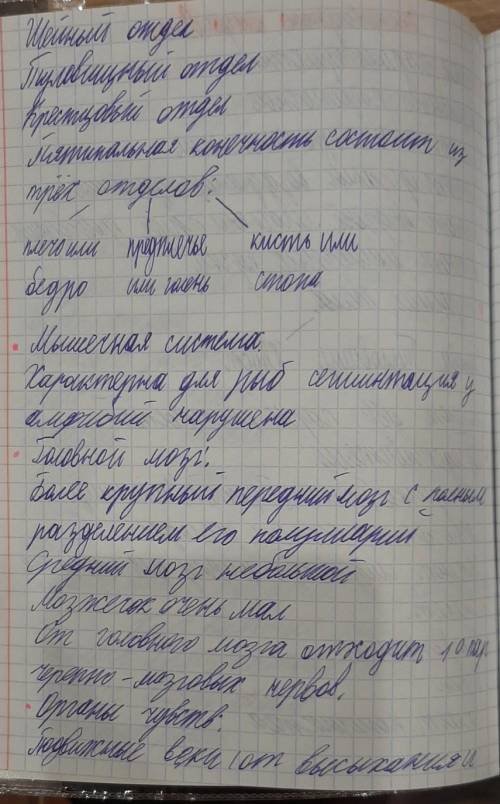 Шейный отдел
Туловищный отдел
Крестцовый отдел
Пятипалая конечность состоит из
трёх отделов:
плечо или предплечье кисть или
бедро или голень стопа
Мышечная система.
Характерна для рыб сегминтация у
амфибий нарушена
Головной мозг:
Более крупный передний мозг с полным
разделением его полушарий
Средний мозг небольшой
Мозжечок очень мал
От головного мозга отходит 10 пар
черепно-мозговых нервов.
Органы чувств:
Подвижные веки (от высыхания и